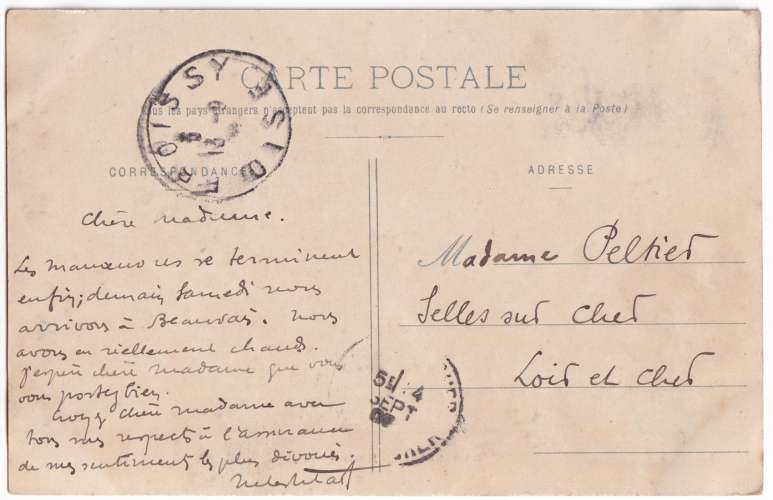 CARTE POSTALE
Tous les pays étrangers n'acceptent pas la correspondance au recto (Se renseigner à la Poste)
CORRESPONDANCE
ADRESSE
FROISSY
OISE
13
Chère madame.
Les manœuvres se terminent
enfin; demain Samedi nous
arrivons à Beauvais. Nous
avons eu réellement chaud.
J'espère chère madame que vous
vous portez bien.
Croyez chère madame avec
tous mes respects à l'assurance
de mes sentiments les plus dévoués.
Madame Peltier
Selles sur Cher
Loir et Cher
5E 4
SEPT
CHER